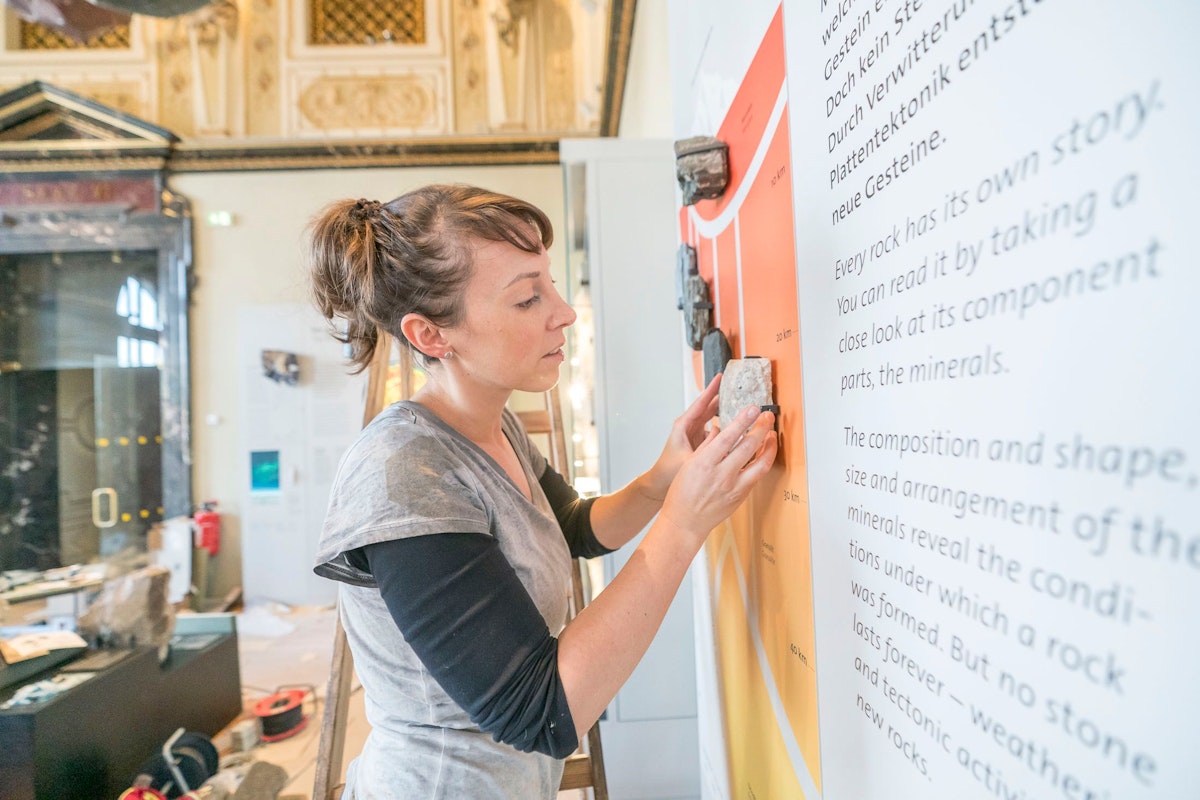 welch
Gestein
Doch kein
Durch Verwitterun
Plattentektonik entst
neue Gesteine.
Every rock has its own story.
You can read it by taking a
close look at its component
parts, the minerals.
The composition and shape,
size and arrangement of the
minerals reveal the condi-
tions under which a rock
was formed. But no stone
lasts forever – weatheri
and tectonic activi
new rocks.
10 km
20 km
30 km
40 km